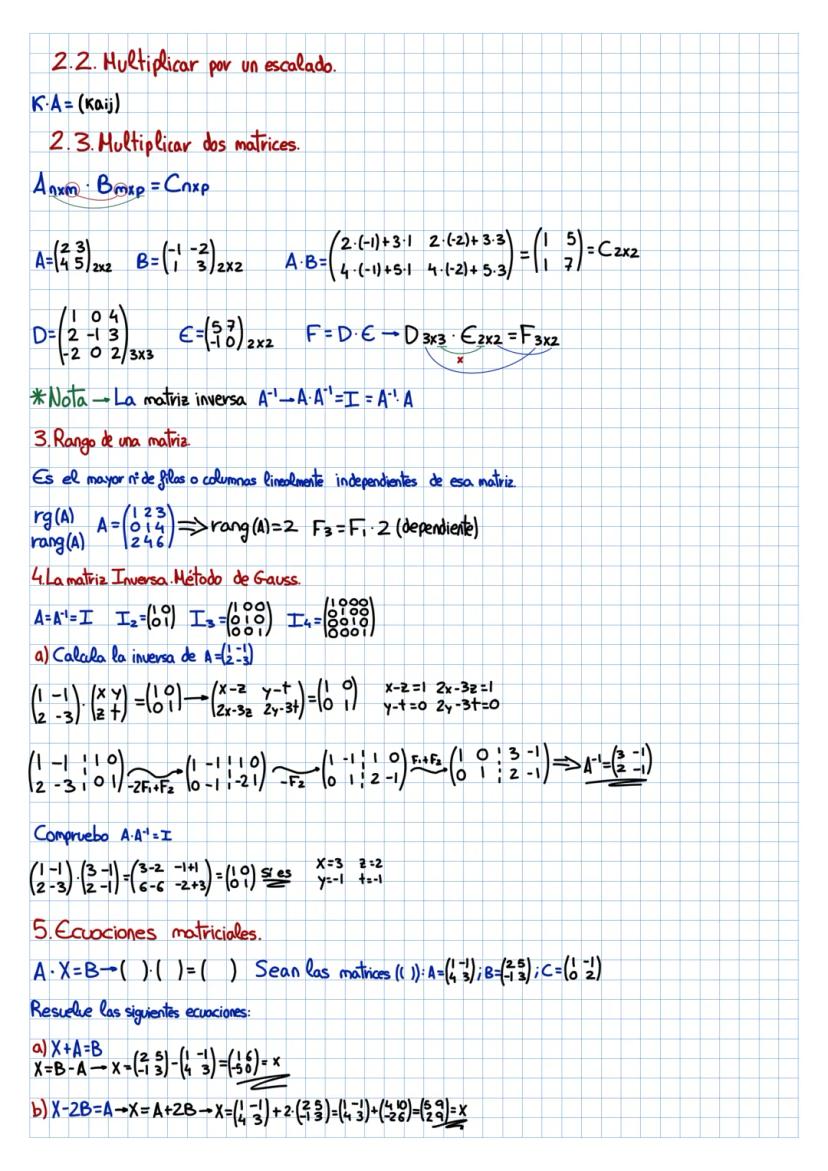 2.2. Multiplicar por un escalado.
K·A = (Kaij)
2.3. Multiplicar dos matrices.
Anxm · Bmxp = Cnxp
A=(2 3 / 4 5)2x2 B=(-1 -2 / 1 3)2x2 A·B=(2·(-1)+3·1 2·(-2)+3·3 / 4·(-1)+5·1 4·(-2)+5·3)=(1 5 / 1 7)=C2x2
D=(1 0 4 / 2 -1 3 / -2 0 2)3x3 E=(5 7 / -1 0)2x2 F=D·E→D3x3·E2x2=F3x2
x
*Nota→La matriz inversa A⁻¹→A·A⁻¹=I=A⁻¹·A
3.Rango de una matriz.
Es el mayor nº de filas o columnas linealmente independientes de esa matriz.
rg(A)
rang(A) A=(1 2 3 / 0 1 4 / 2 4 6)⇒rang(A)=2 F₃=F₁·2 (dependiente)
4.La matriz Inversa.Método de Gauss.
A=A⁻¹=I I₂=(1 0 / 0 1) I₃=(1 0 0 / 0 1 0 / 0 0 1) I₄=(1 0 0 0 / 0 1 0 0 / 0 0 1 0 / 0 0 0 1)
a) Calcula la inversa de A=(1 -1 / 2 -3)
(1 -1 / 2 -3)·(x y / z t)=(1 0 / 0 1)→(x-z y-t / 2x-3z 2y-3t)=(1 0 / 0 1) x-z=1 2x-3z=1
y-t=0 2y-3t=0
(1 -1 ¦ 1 0 / 2 -3 ¦ 0 1) -2F₁+F₂→ (1 -1 ¦ 1 0 / 0 -1 ¦ -2 1) -F₂→ (1 -1 ¦ 1 0 / 0 1 ¦ 2 -1) F₁+F₂ (1 0 ¦ 3 -1 / 0 1 ¦ 2 -1)⇒A⁻¹=(3 -1 / 2 -1)
Compruebo A·A⁻¹=I
(1 -1 / 2 -3)·(3 -1 / 2 -1)=(3-2 -1+1 / 6-6 -2+3)=(1 0 / 0 1) Sí es x=3 z=2
y=-1 t=-1
5.Ecuaciones matriciales.
A·X=B→( )·( )=( ) Sean las matrices (( )): A=(1 -1 / 4 3); B=(2 5 / -1 3); C=(1 -1 / 0 2)
Resuelve las siguientes ecuaciones:
a) X+A=B
X=B-A→X=(2 5 / -1 3)-(1 -1 / 4 3)=(1 6 / -5 0)=x
b) X-2B=A→X=A+2B→X=(1 -1 / 4 3)+2·(2 5 / -1 3)=(1 -1 / 4 3)+(4 10 / -2 6)=(5 9 / 2 9)=x